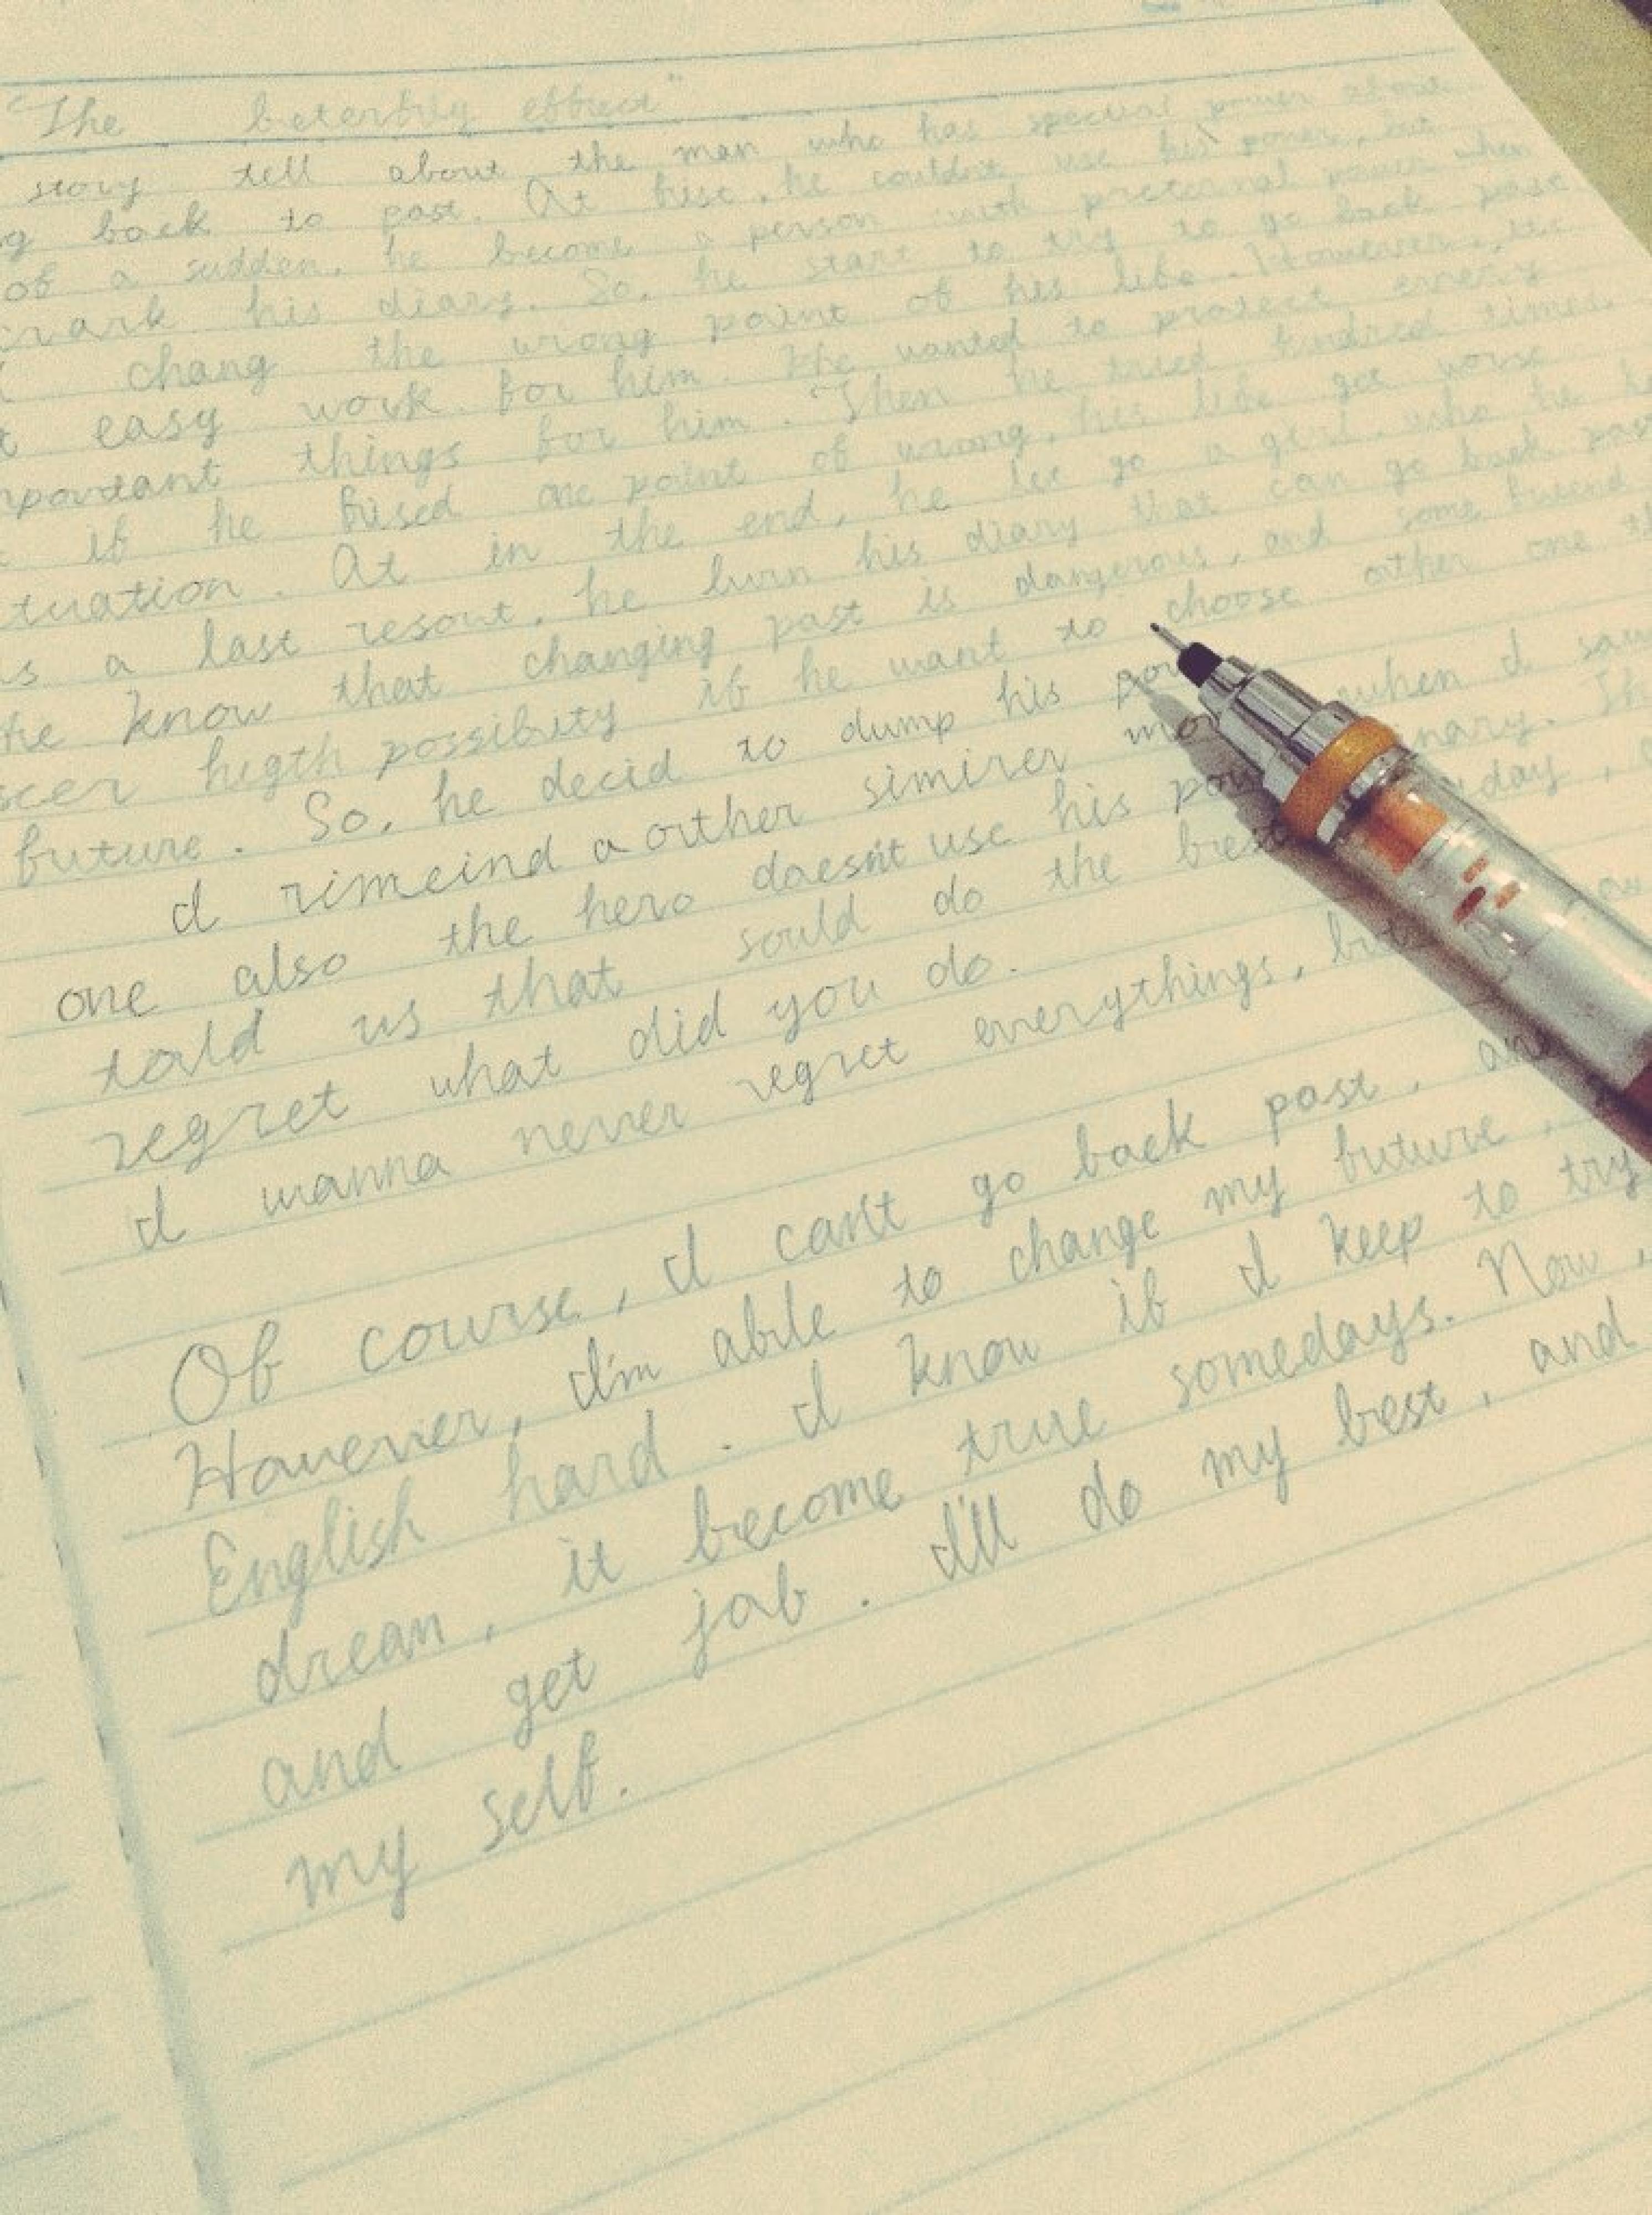 "The beterbly effect"
story tell about the man who has special power about
g back to past. At first, he couldn't use his power, but
of a sudden, he become a person with preternal power when
his diary. So, he start to try to go back past
chang the wrong point of his life. However,
easy work for him. He wanted to protect every
things for him. Then he tried hndred times.
if he fised one point of wrong, his life got worse
tuation. At in the end, he let go a girl, who he
s a last resout, he burn his diary that can go back past
he know that changing past is dangerous, and some friend
higth possibity if he want to choose orther one
future. So, he decid to dump his
I rimeind a orther simirer when I saw
one also the hero doesn't use his
told us that sould do the best day,
regret what did you do.
I wanna never regret everythings,
Of course, I can't go back past, and
However, I'm able to change my future,
English hard. I know if I keep to try
drean, it become true somedays. Now,
and get job. I'll do my best, and
my self.